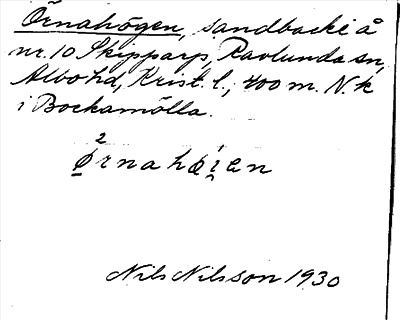 Örnahögen, sandbacke å
nr. 10 Skipparp, Ravlunda sn,
Albo hd, Krist. l., 400 m. N.
i Bockamölla.
2
ørnahøi̯en
Nils Nilsson 1930